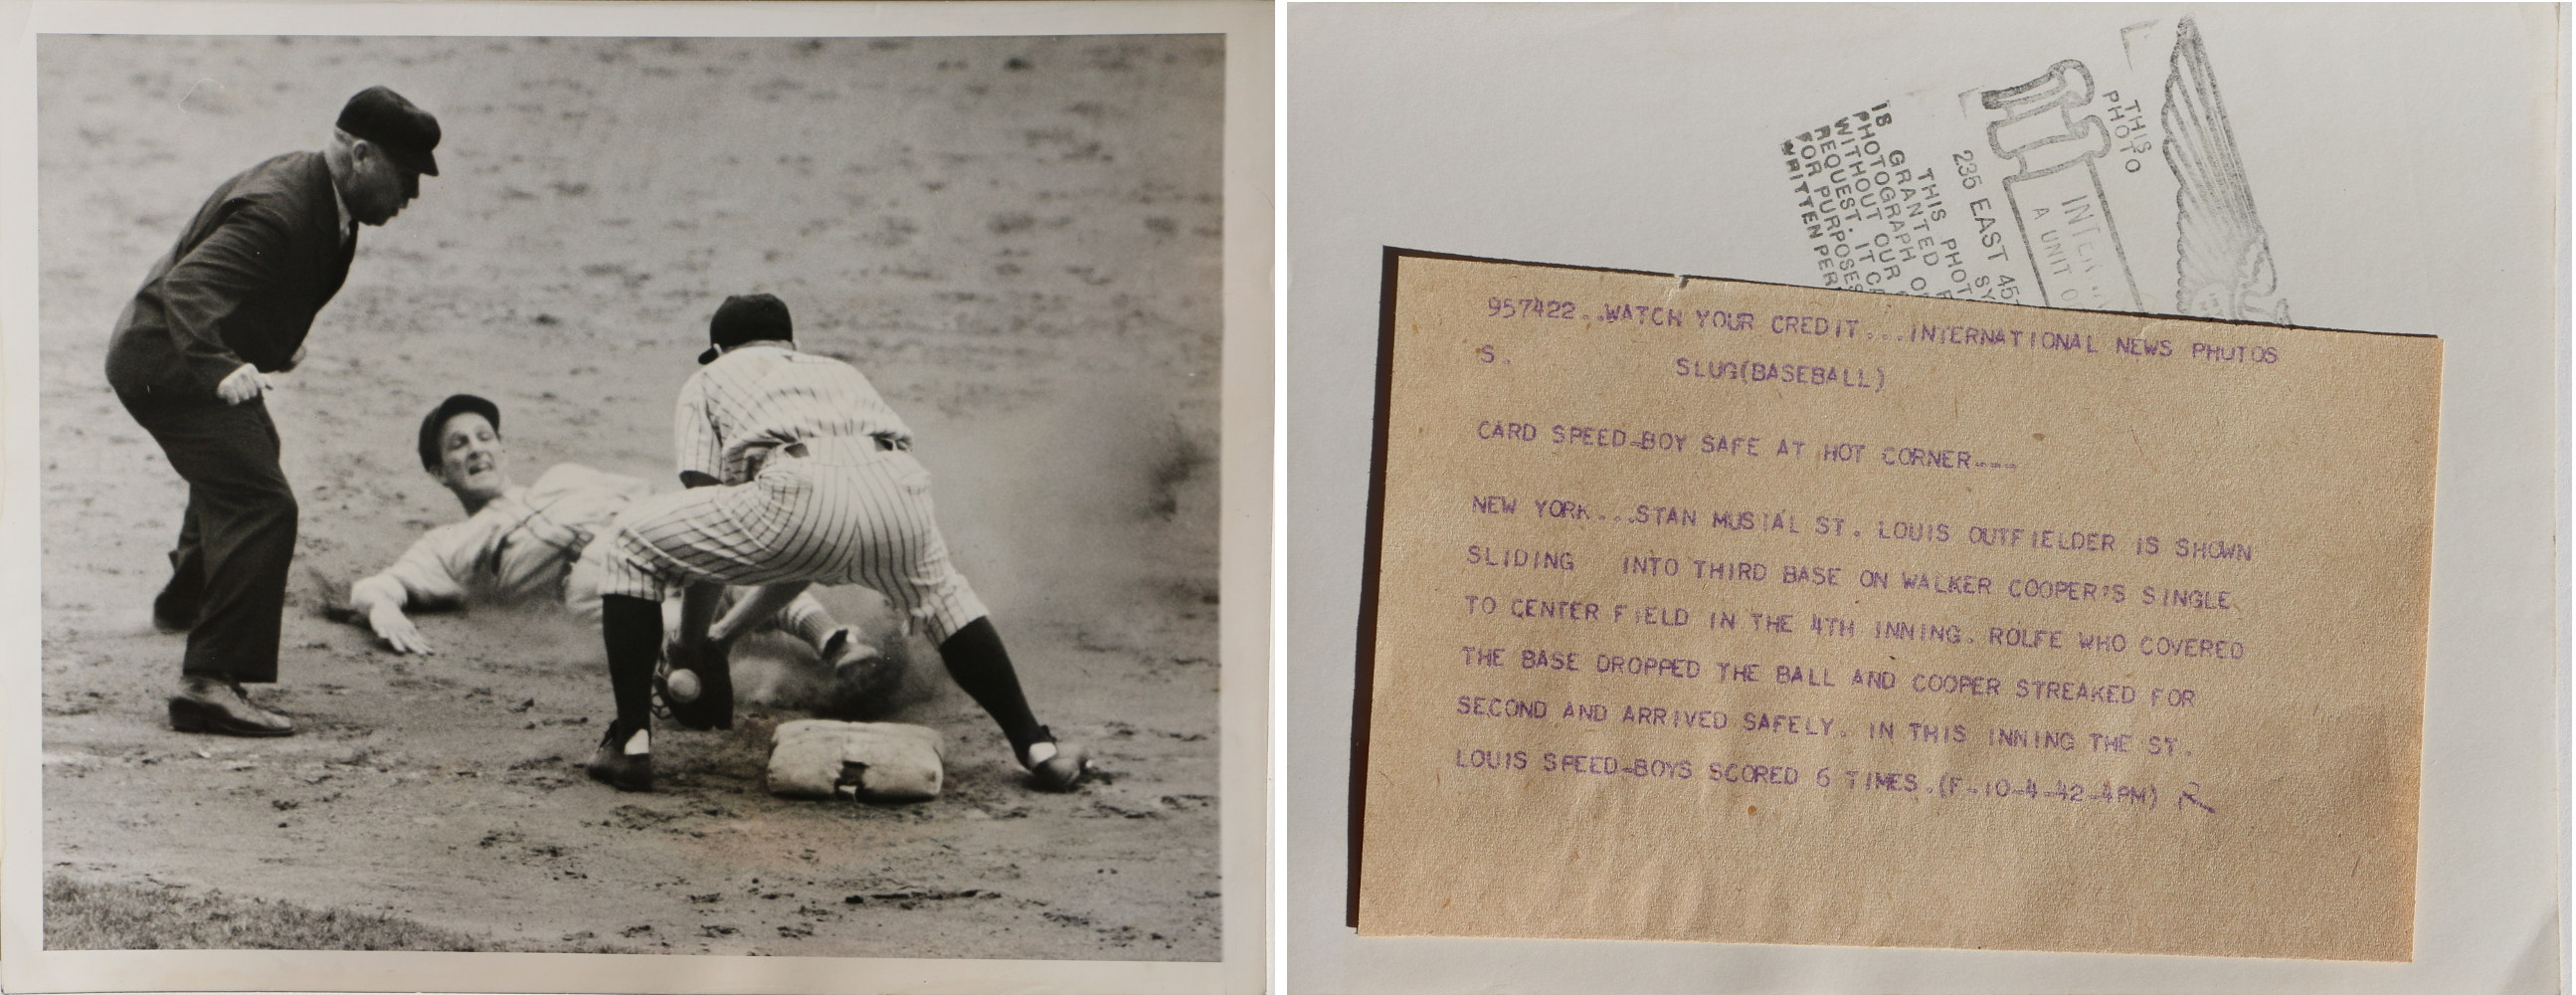 THIS
PHOTO
INTER
A UNIT O
235 EAST 45
SY
THIS PHOT
IS GRANTED O
PHOTOGRAPH
WITHOUT OUR
REQUEST. IT C
FOR PURPOSES
WRITTEN PER
957422..WATCH YOUR CREDIT...INTERNATIONAL NEWS PHOTOS
S. SLUG(BASEBALL)
CARD SPEED-BOY SAFE AT HOT CORNER---
NEW YORK...STAN MUSIAL ST. LOUIS OUTFIELDER IS SHOWN
SLIDING INTO THIRD BASE ON WALKER COOPER'S SINGLE
TO CENTER FIELD IN THE 4TH INNING. ROLFE WHO COVERED
THE BASE DROPPED THE BALL AND COOPER STREAKED FOR
SECOND AND ARRIVED SAFELY. IN THIS INNING THE ST.
LOUIS SPEED-BOYS SCORED 6 TIMES.(F-10-4-42-4PM)